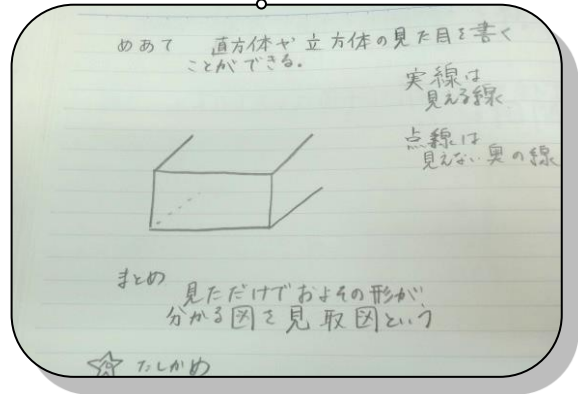 めあて 直方体や立方体の見た目を書く
ことができる。
実線は
見える線
点線は
見えない奥の線
まとめ
見ただけでおよその形が
分かる図を見取図という
たしかめ